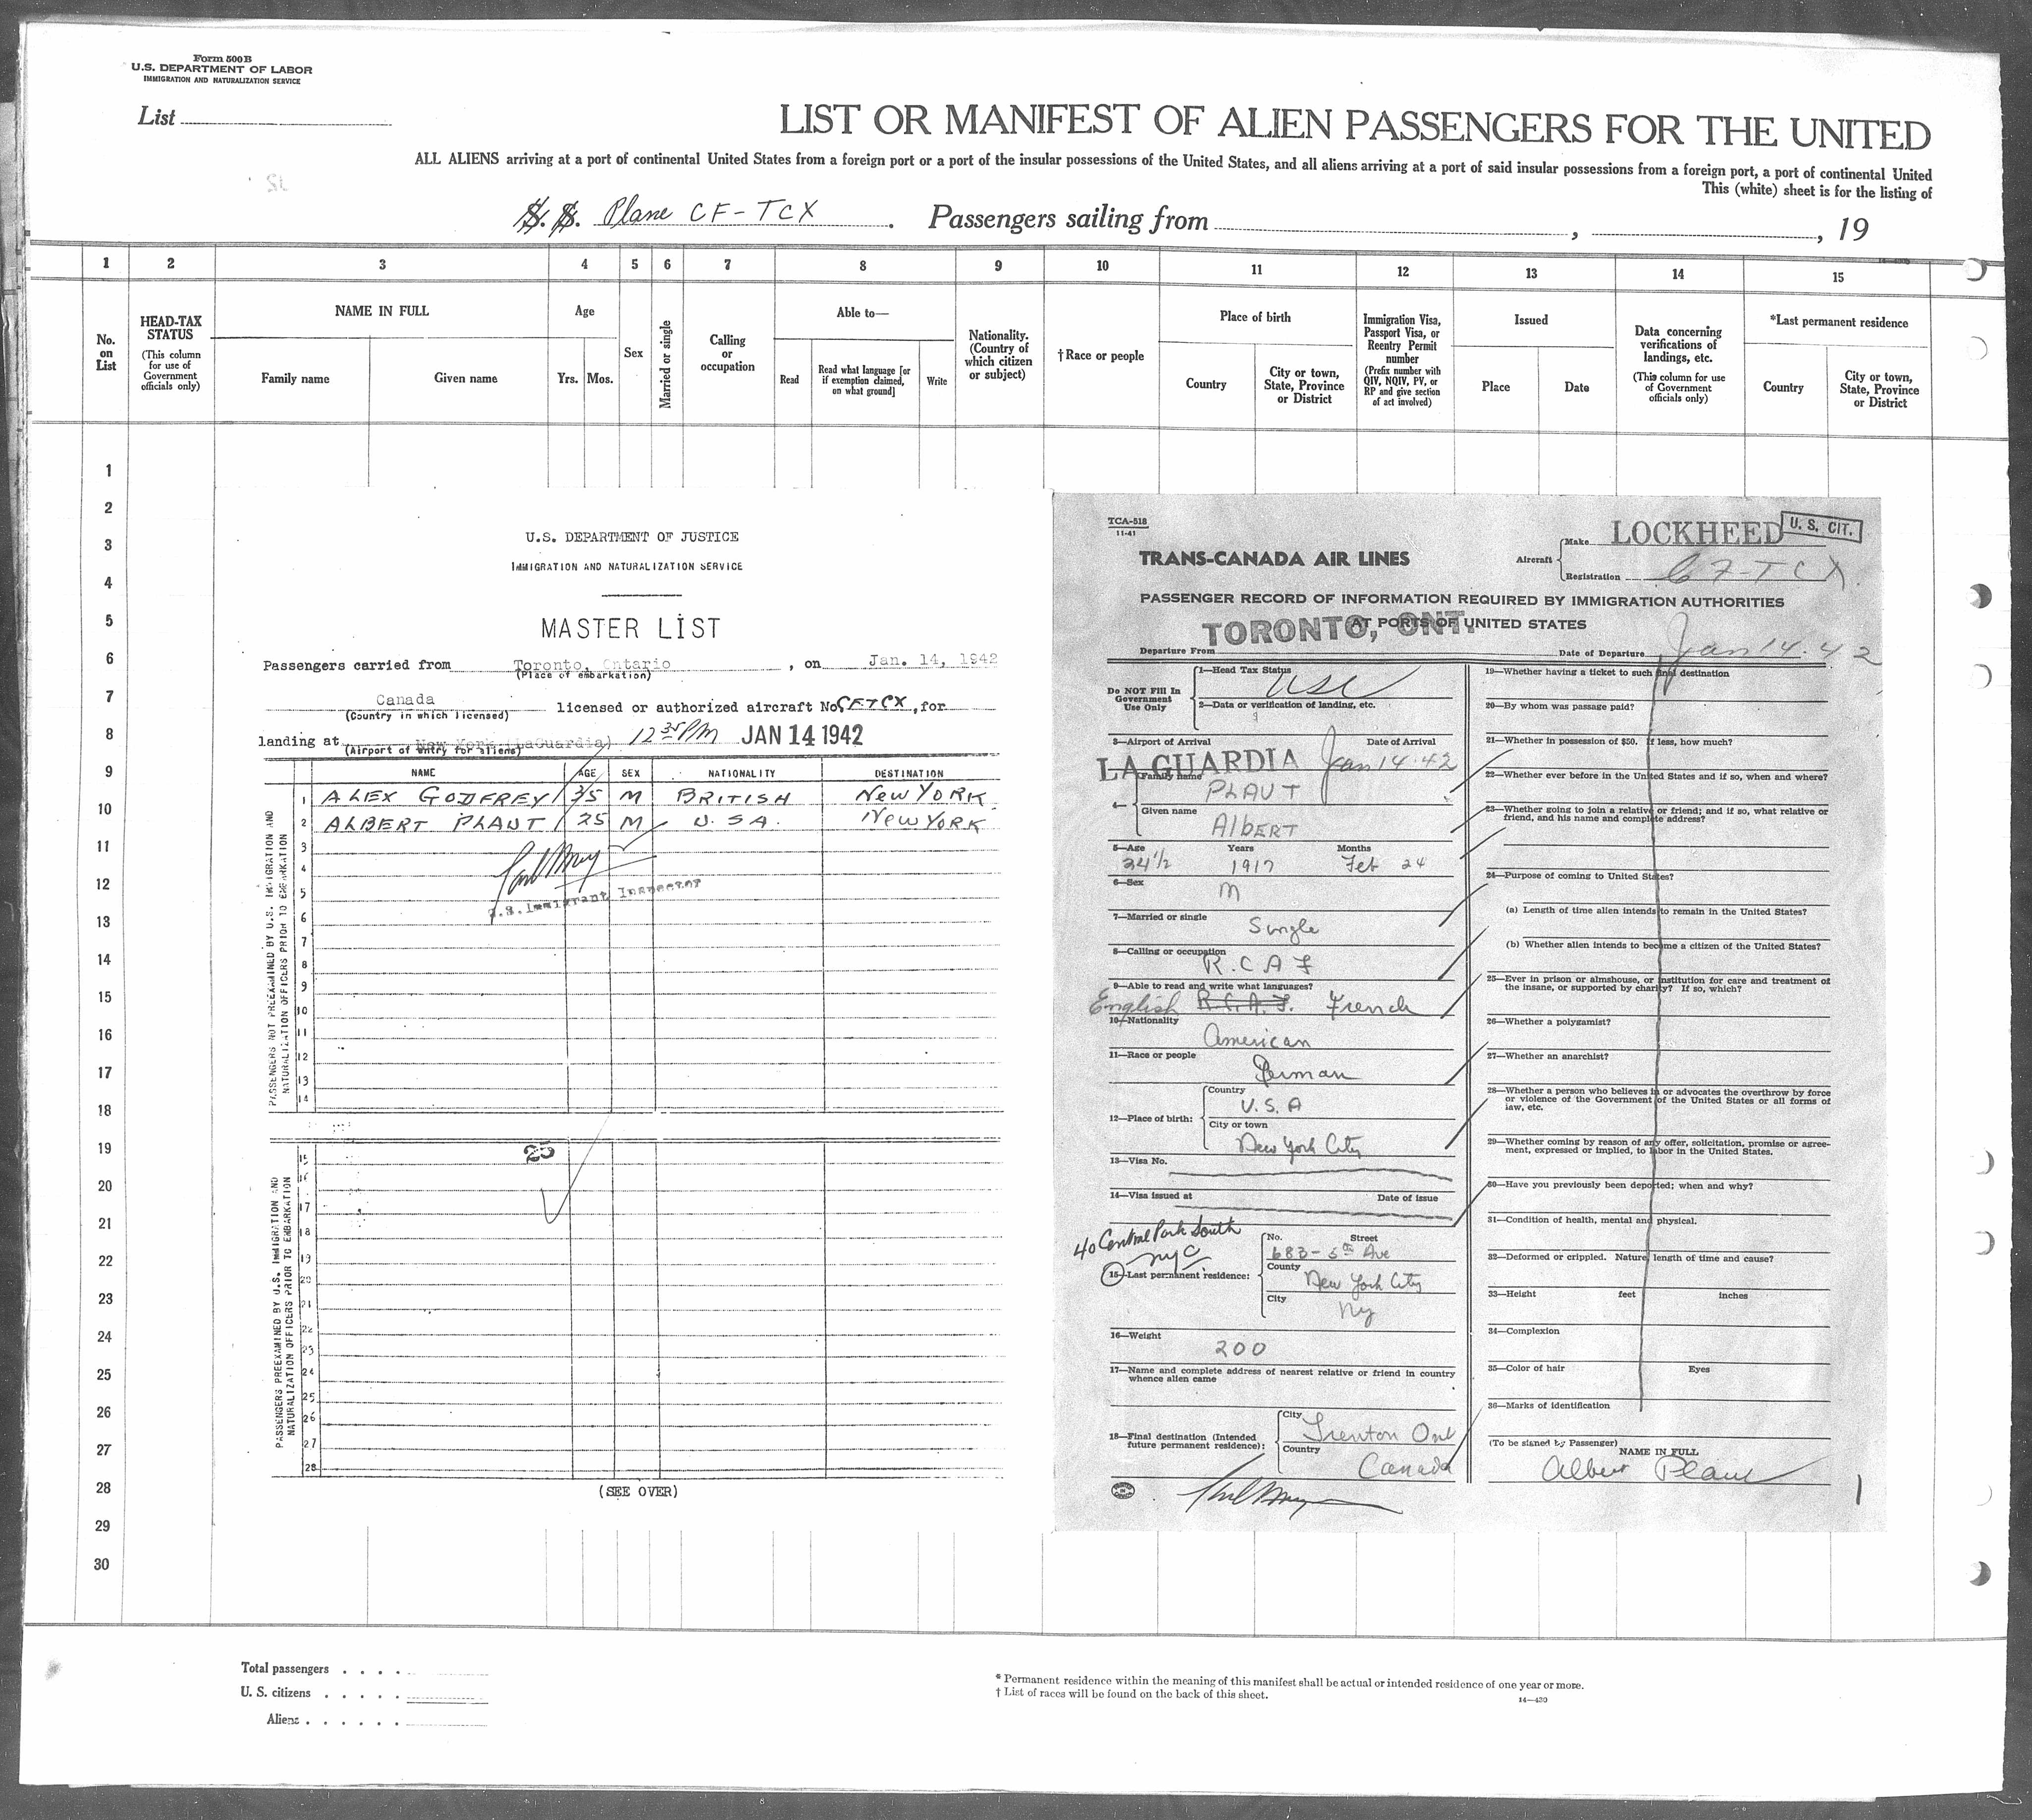 Form 500 B
U.S. DEPARTMENT OF LABOR
IMMIGRATION AND NATURALIZATION SERVICE
List
LIST OR MANIFEST OF ALIEN PASSENGERS FOR THE UNITED
ALL ALIENS arriving at a port of continental United States from a foreign port or a port of the insular possessions of the United States, and all aliens arriving at a port of said insular possessions from a foreign port, a port of continental United
This (white) sheet is for the listing of
S. S. Plane CF-TCX. Passengers sailing from , , 19
1 2 3 4 5 6 7 8 9 10 11 12 13 14 15
No. on List
HEAD-TAX STATUS
(This column for use of Government officials only)
NAME IN FULL
Family name
Given name
Age
Yrs. Mos.
Sex
Married or single
Calling or occupation
Able to—
Read
Read what language [or if exemption claimed, on what ground]
Write
Nationality. (Country of which citizen or subject)
†Race or people
Place of birth
Country
City or town, State, Province or District
Immigration Visa, Passport Visa, or Reentry Permit number
(Prefix number with QIV, NQIV, PV, or RP and give section of act involved)
Issued
Place
Date
Data concerning verifications of landings, etc.
(This column for use of Government officials only)
*Last permanent residence
Country
City or town, State, Province or District
1
2
3
4
5
6
7
8
9
10
11
12
13
14
15
16
17
18
19
20
21
22
23
24
25
26
27
28
29
30
U.S. DEPARTMENT OF JUSTICE
IMMIGRATION AND NATURALIZATION SERVICE
MASTER LIST
Passengers carried from Toronto, Ontario , on Jan. 14, 1942
(Place of embarkation)
Canada licensed or authorized aircraft No CFTCX, for
(Country in which licensed)
landing at New York (LaGuardia) 12 35 PM JAN 14 1942
(Airport of entry for aliens)
NAME AGE SEX NATIONALITY DESTINATION
PASSENGERS NOT PREEXAMINED BY U.S. IMMIGRATION AND NATURALIZATION OFFICERS PRIOR TO EMBARKATION
1 ALEX GODFREY 35 M BRITISH NEW YORK.
2 ALBERT PLAUT 25 M U.S.A. NEW YORK
3
4
5
U.S. Immigrant Inspector
6
7
8
9
10
11
12
13
14
PASSENGERS PREEXAMINED BY U.S. IMMIGRATION AND NATURALIZATION OFFICERS PRIOR TO EMBARKATION
25
15
16
17
18
19
20
21
22
23
24
25
26
27
28
(SEE OVER)
TCA-518
11-41
TRANS-CANADA AIR LINES
Aircraft
Make LOCKHEED
U. S. CIT.
Registration CF-TCX
PASSENGER RECORD OF INFORMATION REQUIRED BY IMMIGRATION AUTHORITIES
AT PORTS OF UNITED STATES
TORONTO, ONT.
Departure From Date of Departure Jan 14. 42
Do NOT Fill In Government Use Only
1—Head Tax Status USC
2—Data or verification of landing, etc.
3—Airport of Arrival Date of Arrival
LA GUARDIA Jan 14 42
4— Family name PLAUT
Given name Albert
5—Age Years Months
24 1/2 1917 Feb 24
6—Sex M
7—Married or single Single
8—Calling or occupation R.C.A.F
9—Able to read and write what languages?
English R.C.A.F. French
10—Nationality American
11—Race or people German
12—Place of birth: Country U.S.A
City or town New York City
13—Visa No.
14—Visa issued at Date of issue
40 Central Park South
NYC
15—Last permanent residence: No. Street
683-5th Ave
County New York City
City Ny
16—Weight 200
17—Name and complete address of nearest relative or friend in country whence alien came
18—Final destination (Intended future permanent residence): City Trenton Ont
Country Canada
19—Whether having a ticket to such final destination
20—By whom was passage paid?
21—Whether in possession of $50. If less, how much?
22—Whether ever before in the United States and if so, when and where?
23—Whether going to join a relative or friend; and if so, what relative or friend, and his name and complete address?
24—Purpose of coming to United States?
(a) Length of time alien intends to remain in the United States?
(b) Whether alien intends to become a citizen of the United States?
25—Ever in prison or almshouse, or institution for care and treatment of the insane, or supported by charity? If so, which?
26—Whether a polygamist?
27—Whether an anarchist?
28—Whether a person who believes in or advocates the overthrow by force or violence of the Government of the United States or all forms of law, etc.
29—Whether coming by reason of any offer, solicitation, promise or agreement, expressed or implied, to labor in the United States.
30—Have you previously been deported; when and why?
31—Condition of health, mental and physical.
32—Deformed or crippled. Nature, length of time and cause?
33—Height feet inches
34—Complexion
35—Color of hair Eyes
36—Marks of identification
(To be signed by Passenger) NAME IN FULL
Albert Plaut
Total passengers
U. S. citizens
Aliens
* Permanent residence within the meaning of this manifest shall be actual or intended residence of one year or more.
† List of races will be found on the back of this sheet.
14—430